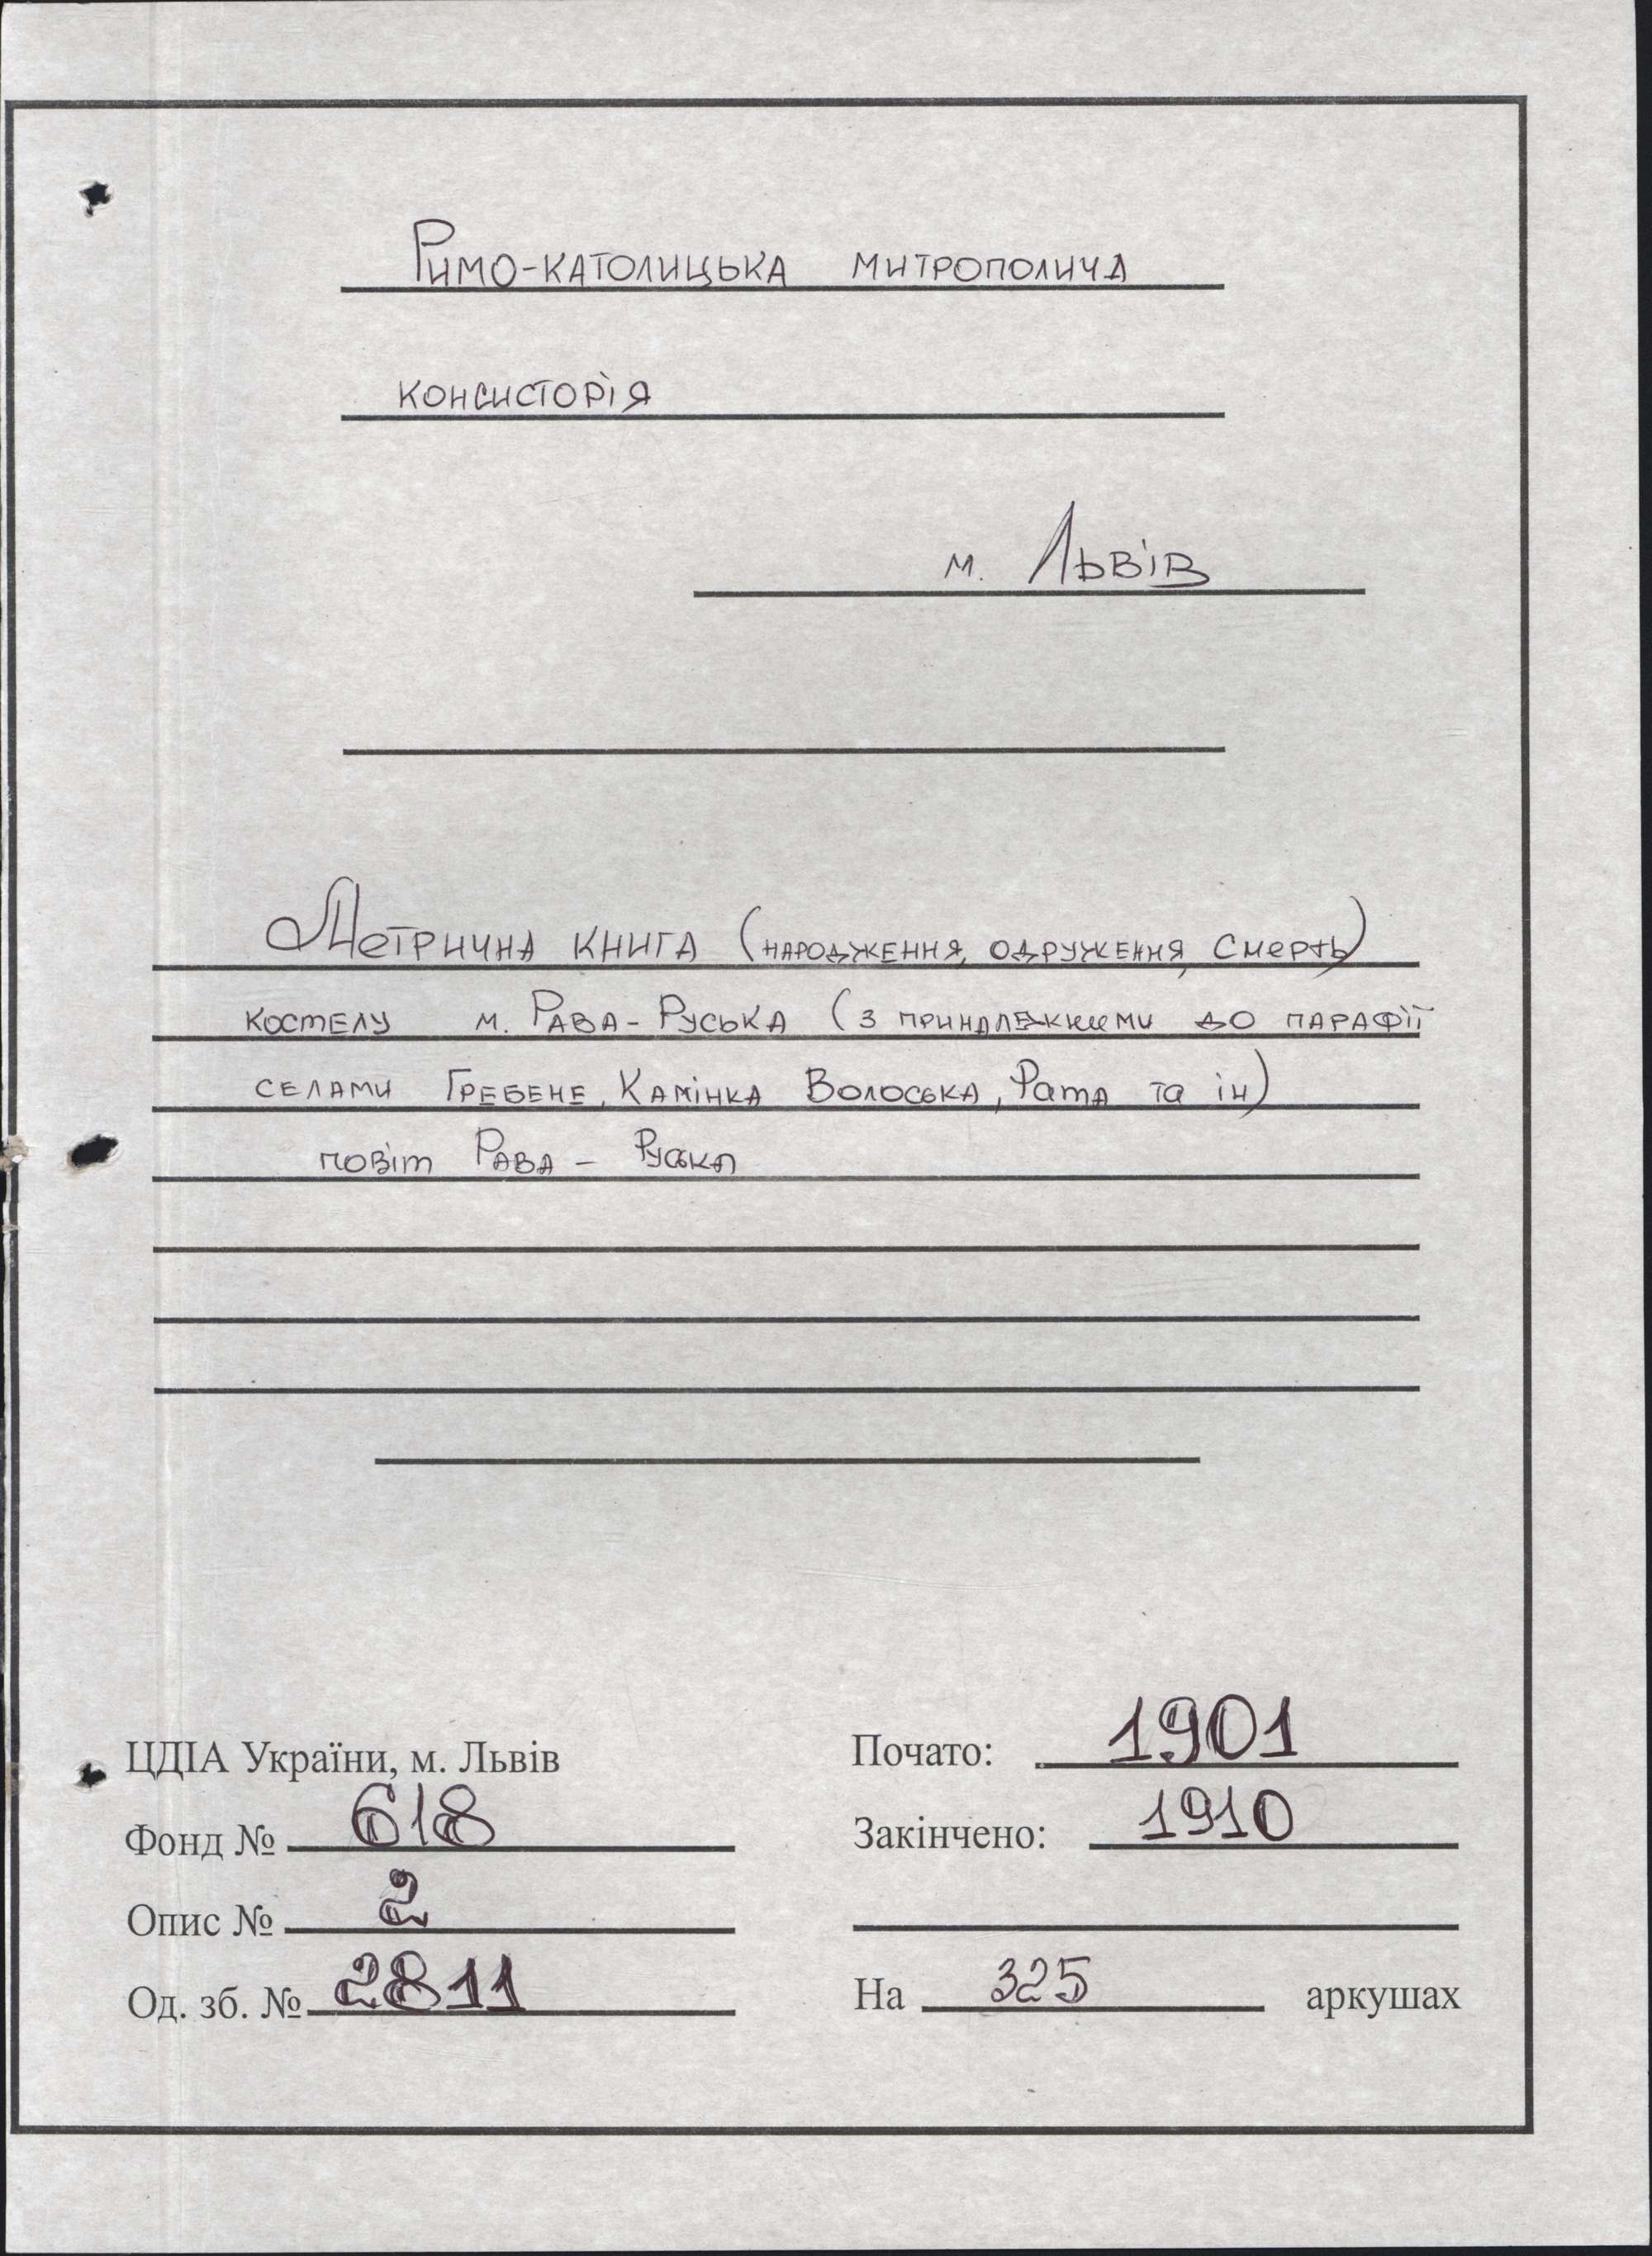 Римо-католицька митрополича
консисторія
м. Львів
Метрична книга (народження, одруження, смерть)
костелу м. Рава-Руська (з приналежними до парафії
селами Гребене, Камінка Волоська, Рата та ін)
повіт Рава - Руська
ЦДІА України, м. Львів
Фонд № 618
Опис № 2
Од. зб. № 2811
Почато: 1901
Закінчено: 1910
На 325 аркушах